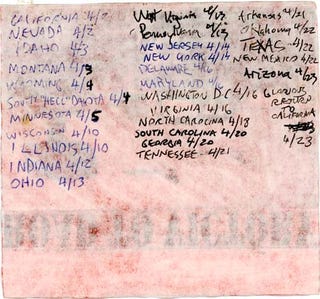 CALIFORNIA 4/2
NEVADA 4/2
IDAHO 4/3
MONTANA 4/3
WYOMING 4/4
SOUTH "HELL" DAKOTA 4/4
MINNESOTA 4/5
WISCONSIN 4/10
ILLINOIS 4/10
INDIANA 4/12
OHIO 4/13
West Virginia 4/13
Pennsylvania 4/13
NEW JERSEY 4/14
NEW YORK 4/14
DELAWARE 4/16
MARYLAND
WASHINGTON DC 4/16
VIRGINIA 4/16
NORTH CAROLINA 4/18
SOUTH CAROLINA 4/20
GEORGIA 4/20
TENNESSEE 4/21
Arkansas 4/21
OKlahoma 4/22
TEXAS 4/22
NEW MEXICO 4/22
Arizona 4/23
GLORIOUS
RETURN
TO
CALIFORNIA
4/23